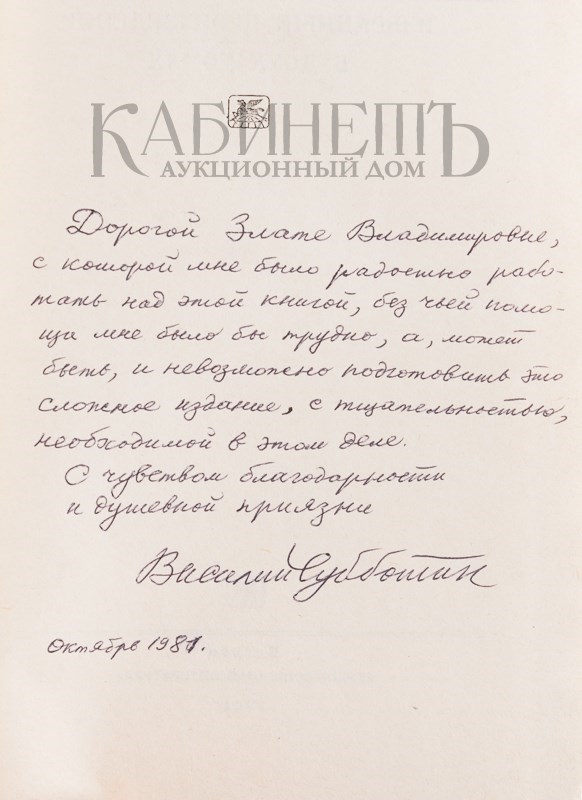 КАБИНЕТЪ
АУКЦИОННЫЙ ДОМ
Дорогой Злате Владимировне,
с которой мне было радостно рабо-
тать над этой книгой, без чьей помо-
щи мне было бы трудно, а, может
быть, и невозможно подготовить это
сложное издание, с тщательностью,
необходимой в этом деле.
С чувством благодарности
и душевной приязни
Василий Субботин
Октябрь 1981.